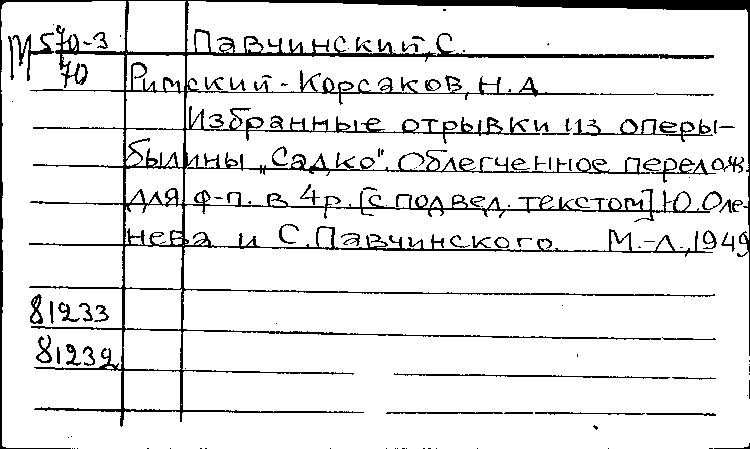 М 570-3 Павчинский, С.
70 Римский-Корсаков, Н.А
Избранные отрывки из оперы-
былины „Садко". Облегченное перелож.
для ф-п. в 4р. [с подвед. текстом] Ю. Оле-
нева и С. Павчинского. М.-Л., 1949
81233
81232